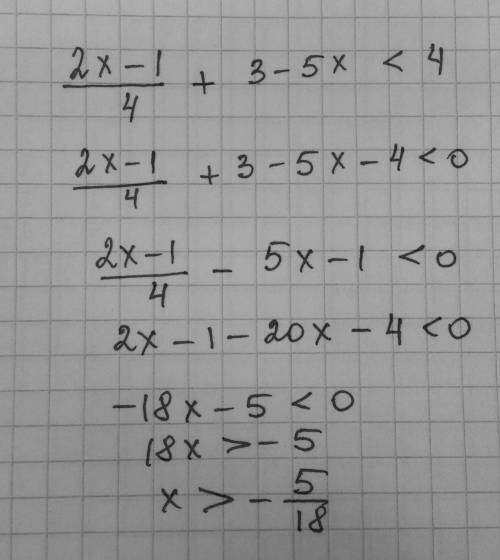 (2x-1)/4 + 3-5x < 4
(2x-1)/4 + 3-5x-4<0
(2x-1)/4 - 5x-1 <0
2x-1-20x-4<0
-18x-5<0
18x>-5
x>-5/18